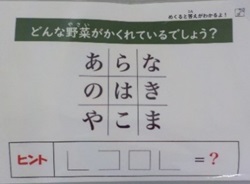 めくると答えがわかるよ！
どんな野菜がかくれているでしょう？
あ ら な
の は き
や こ ま
ヒント = ?